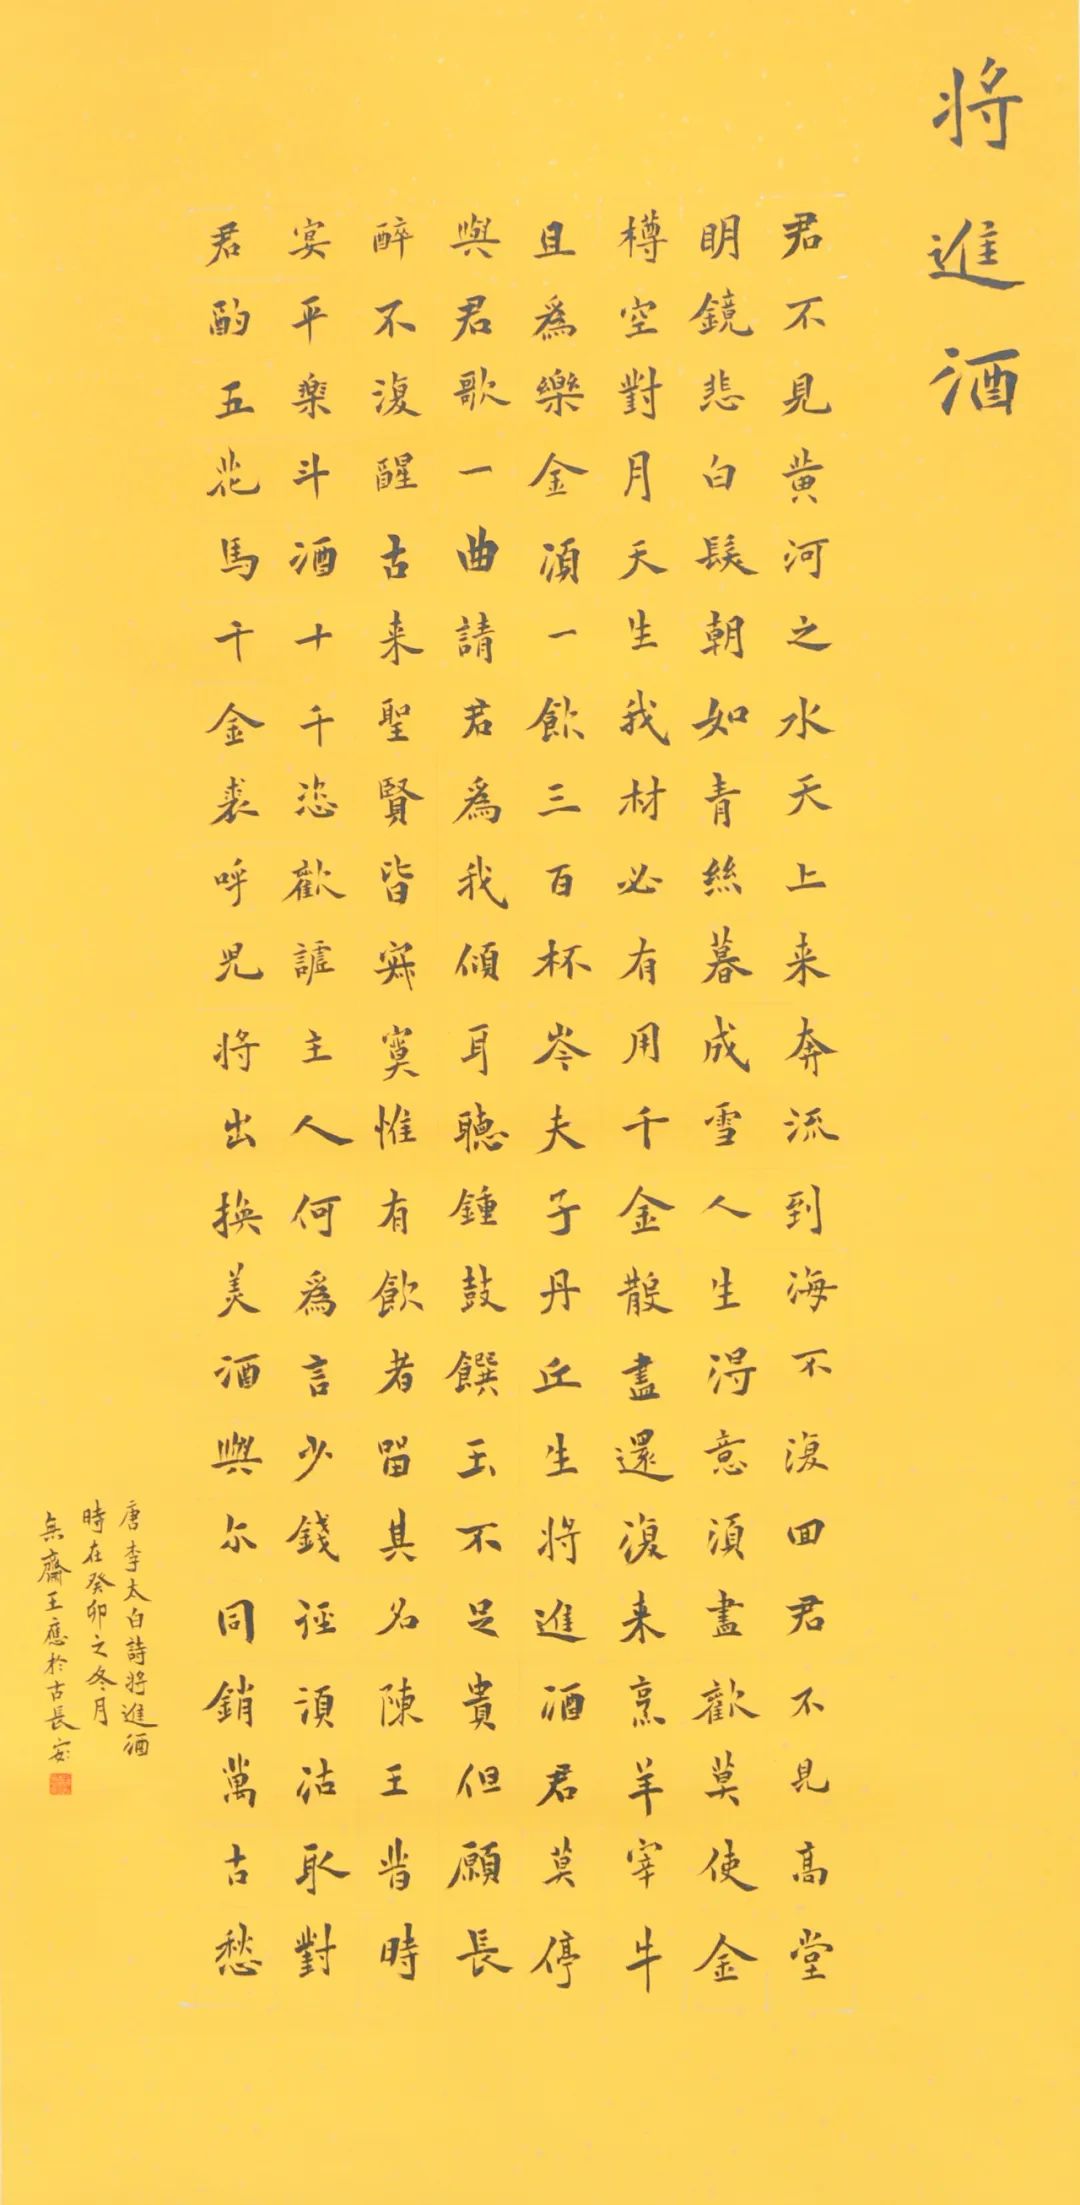 将進酒
君不見黄河之水天上来奔流到海不復回君不見高堂
明鏡悲白髮朝如青絲暮成雪人生得意須盡歡莫使金
樽空對月天生我材必有用千金散盡還復来烹羊宰牛
且為樂金須一飲三百杯岑夫子丹丘生将進酒君莫停
與君歌一曲請君為我傾耳聽鍾鼓饌玉不足貴但願長
醉不復醒古来聖賢皆寂寞惟有飲者留其名陳王昔時
宴平樂斗酒十千恣歡謔主人何為言少錢逕須沽取對
君酌五花馬千金裘呼兒将出換美酒與尔同銷萬古愁
唐李太白詩将進酒
時在癸卯之冬月
無齋王應於古長安